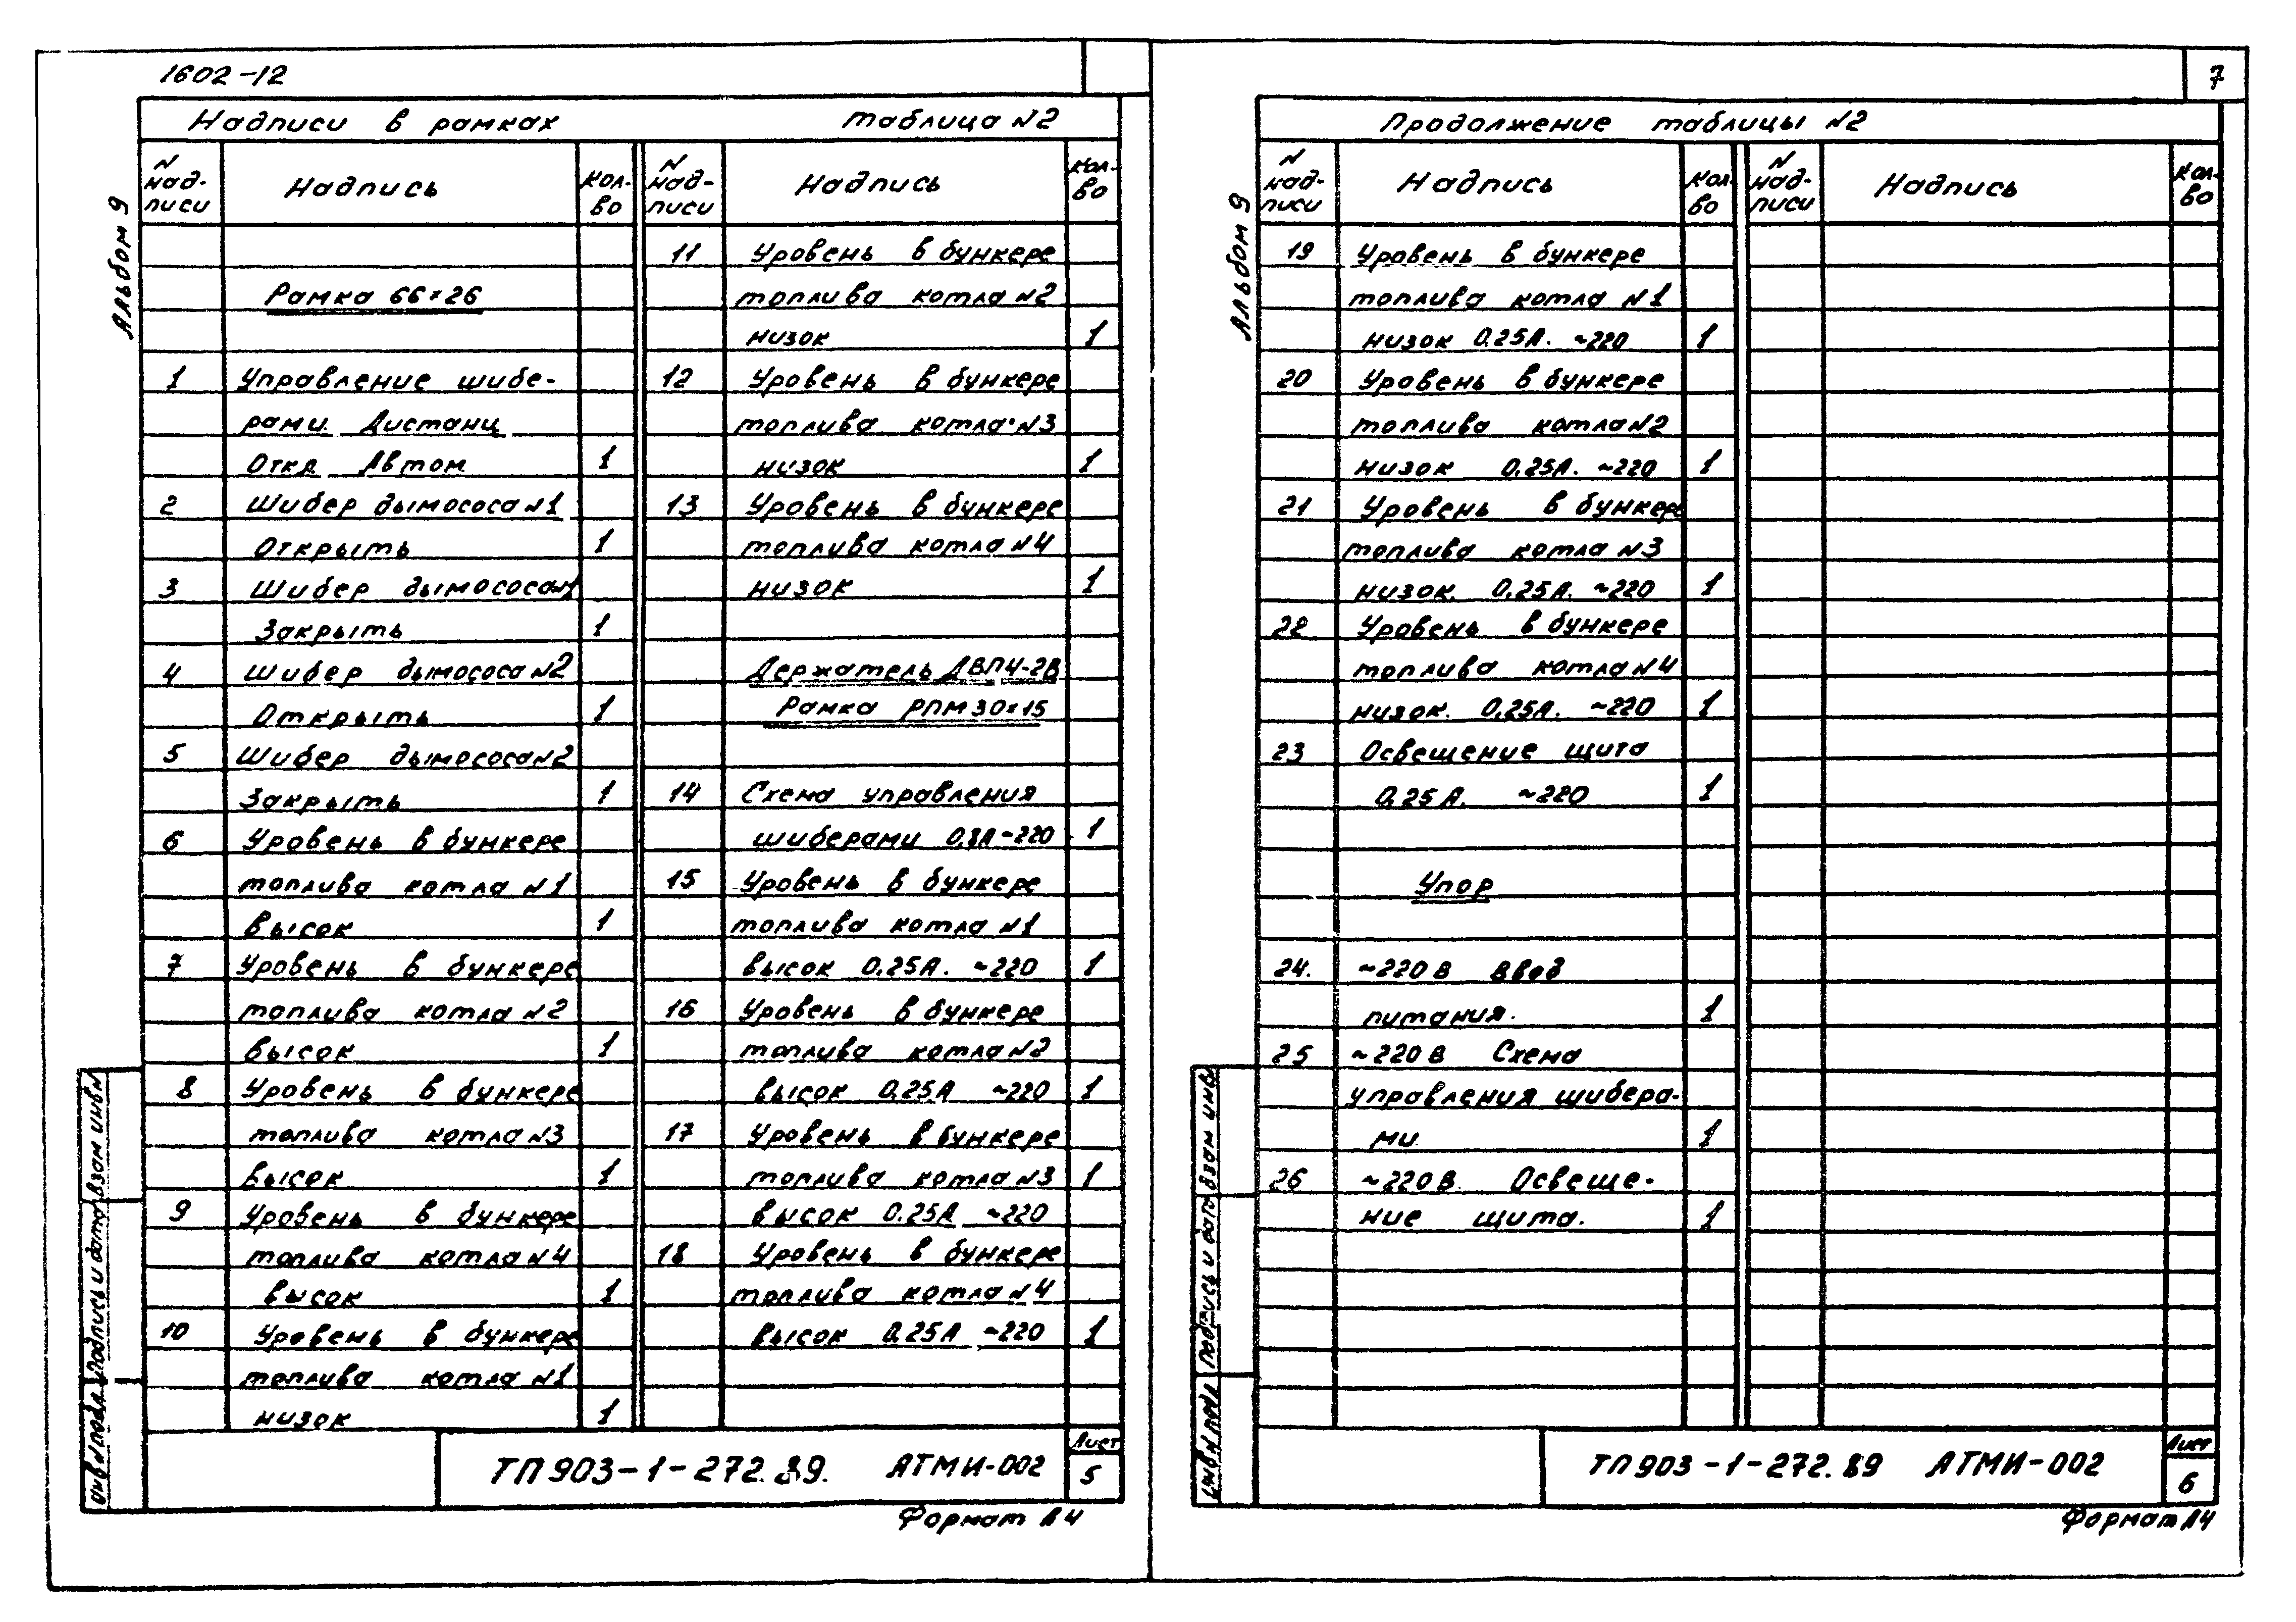 1602-12
Альбом 9
Надписи в рамках таблица N2
N надписи Надпись Кол-во N надписи Надпись Кол-во
Рамка 66×26
1 Управление шибе-
рами. Дистанц
Откл Автом 1
2 Шибер дымососа N1
Открыть 1
3 Шибер дымососа N1
Закрыть 1
4 Шибер дымососа N2
Открыть 1
5 Шибер дымососа N2
Закрыть 1
6 Уровень в бункере
топлива котла N1
высок 1
7 Уровень в бункере
топлива котла N2
высок 1
8 Уровень в бункере
топлива котла N3
высок 1
9 Уровень в бункере
топлива котла N4
высок 1
10 Уровень в бункере
топлива котла N1
низок 1
11 Уровень в бункере
топлива котла N2
низок 1
12 Уровень в бункере
топлива котла N3
низок 1
13 Уровень в бункере
топлива котла N4
низок 1
Держатель ДВП4-2В
Рамка РПМ 30×15
14 Схема управления
шиберами 0,8А ~220 1
15 Уровень в бункере
топлива котла N1
высок 0,25А. ~220 1
16 Уровень в бункере
топлива котла N2
высок 0,25А ~220 1
17 Уровень в бункере
топлива котла N3 1
высок 0.25А ~220
18 Уровень в бункере
топлива котла N4
высок 0.25А ~220 1
Инв N подл. Подпись и дата Взам инв N
ТП 903-1-272.89. АТМИ-002
Лист
5
Формат А4
7
Альбом 9
Продолжение таблицы N2
N надписи Надпись Кол-во N надписи Надпись Кол-во
19 Уровень в бункере
топлива котла N1
низок 0.25А. ~220 1
20 Уровень в бункере
топлива котла N2
низок 0,25А. ~220 1
21 Уровень в бункере
топлива котла N3
низок. 0,25А. ~220 1
22 Уровень в бункере
топлива котла N4
низок. 0,25А. ~220 1
23 Освещение щита
0,25А. ~220 1
Упор
24. ~220 В Ввод
питания. 1
25 ~220 В Схема
управления шибера-
ми. 1
26 ~220 В. Освеще-
ние щита. 1
Инв N подл Подпись и дата Взам инв
ТП 903-1-272.89 АТМИ-002
Лист
6
Формат А4